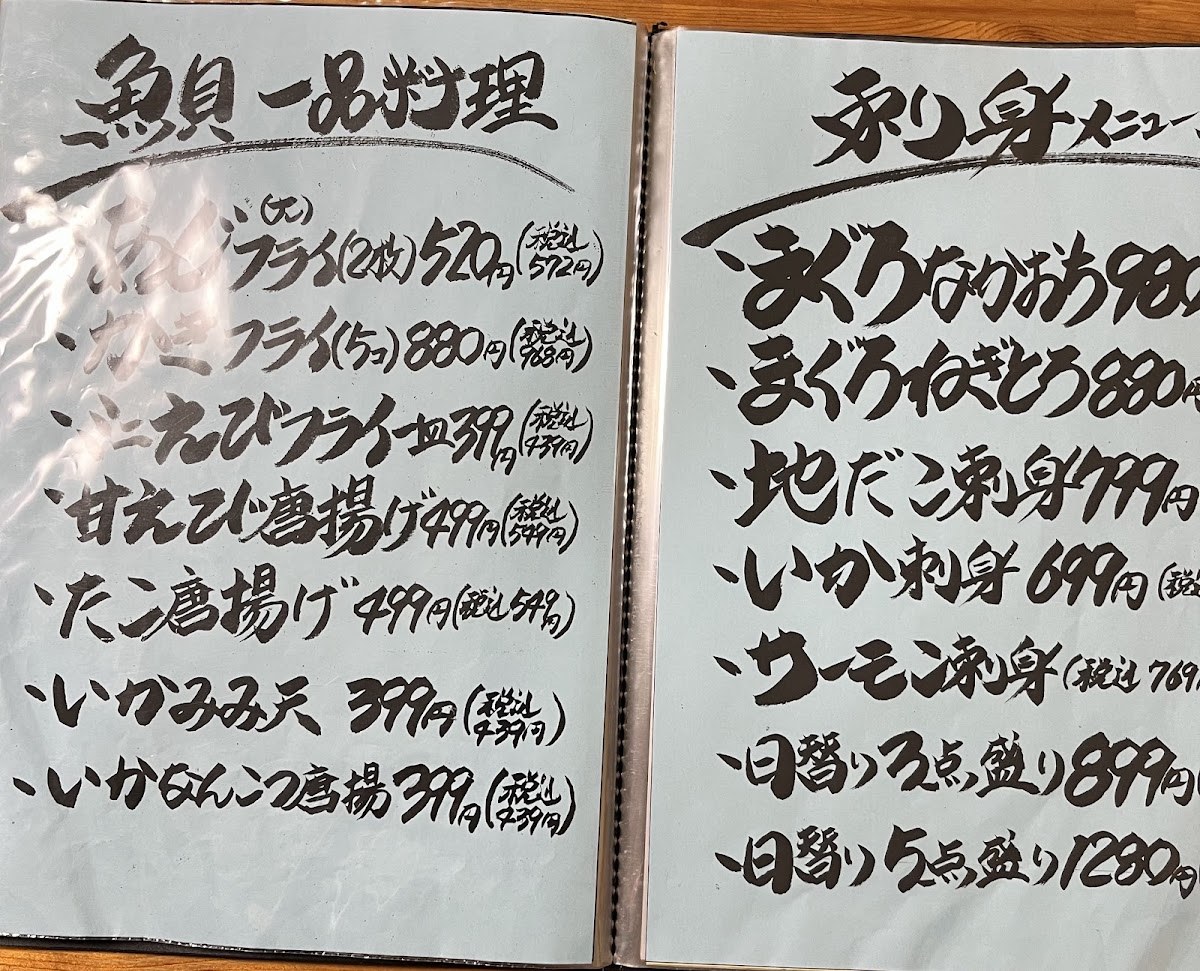 魚貝一品料理
あじ(大)フライ(2枚)520円(税込572円)
・かきフライ(5コ)880円(税込968円)
・ミニえびフライ一皿399円(税込439円)
・甘えび唐揚げ499円(税込549円)
・たこ唐揚げ499円(税込549円)
・いかみみ天399円(税込439円)
・いかなんこつ唐揚399円(税込439円)
刺身メニュー
・まぐろなかおち980
・まぐろねぎとろ880円
・地だこ刺身799円
・いか刺身699円(税込
・サーモン刺身(税込769
・日替り3点盛り899円(
・日替り5点盛り1280円(